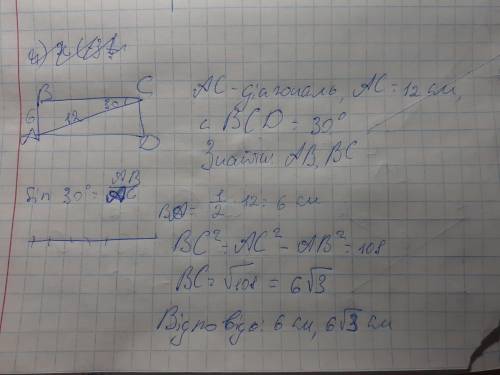 4)
B C
30°
6 12
A D
AC - діагональ, AC = 12 см,
∠ BCD = 30°
Знайти AB, BC
sin 30° = AB/AC
BA = 1/2 · 12 = 6 см
BC² = AC² - AB² = 108
BC = √108 = 6√3
Відповідь: 6 см, 6√3 см